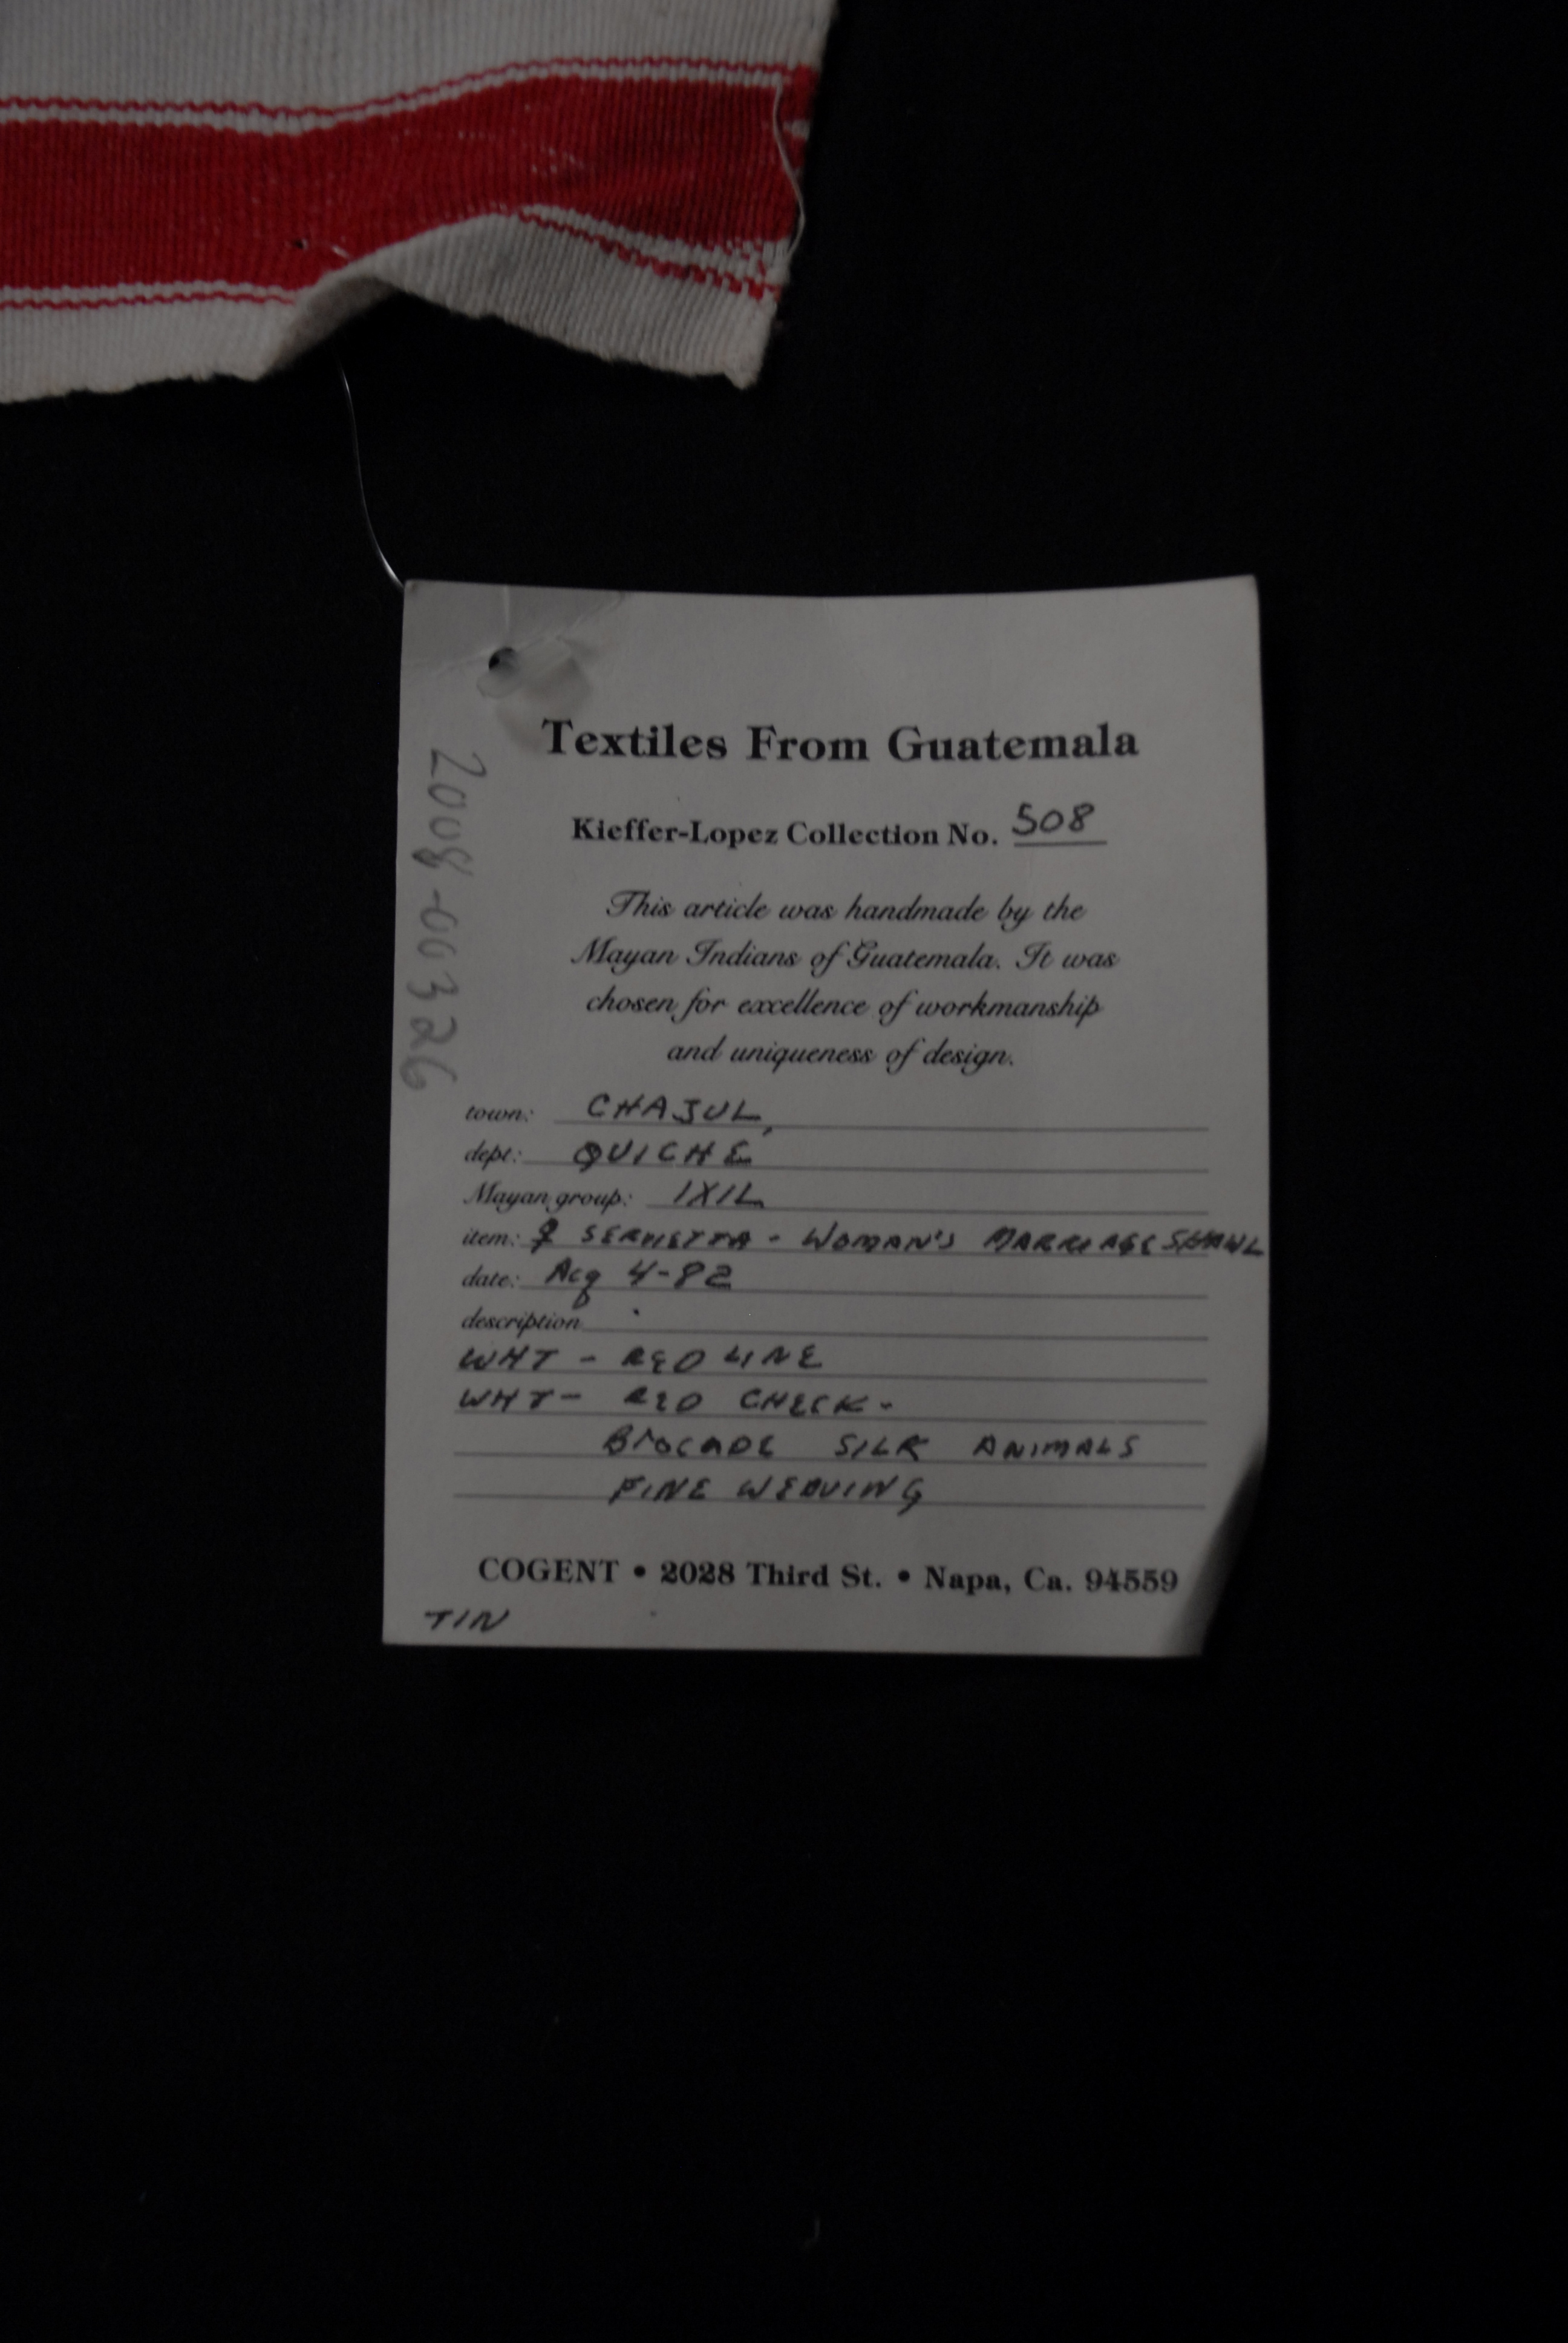 Textiles From Guatemala
Kieffer-Lopez Collection No. 508
This article was handmade by the
Mayan Indians of Guatemala. It was
chosen for excellence of workmanship
and uniqueness of design.
town: CHAJUL,
dept: QUICHE
Mayan group: IXIL
item: ♀ SERVIETTA - WOMAN'S MARRIAGE SHAWL
date: Acq 4-82
description
WHT - RED LINE
WHT - RED CHECK -
BrOCADE SILK ANIMALS
FINE WEAVING
COGENT • 2028 Third St. • Napa, Ca. 94559
TIN
2008-00326